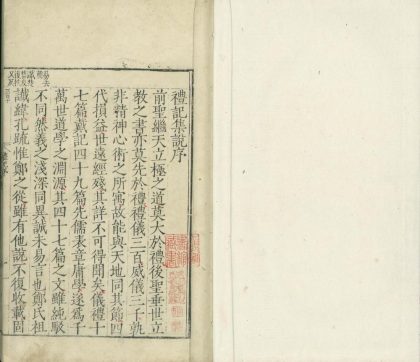 禮記集說序
前聖繼天立極之道莫大於禮後聖垂世立
教之書亦莫先於禮禮儀三百威儀三千孰
非精神心術之所寓故能與天地同其節四
代損益世遠經殘其詳不可得聞矣儀禮十
七篇戴記四十九篇先儒表章庸學遂為千
萬世道學之淵源其四十七篇之文雖純駁
不同然義之淺深同異誠未易言也鄭氏祖
讖緯孔疏惟鄭之從雖有他說不復收載固